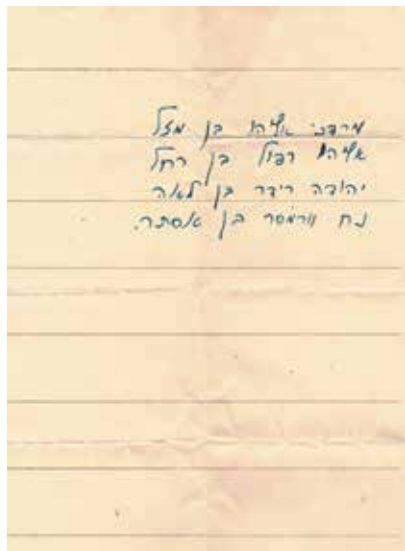 מרדכי אליהו בן מזל
אליהו רפול בן רחל
יהודה רידר בן לאה
נח וורמסר בן אסתר.